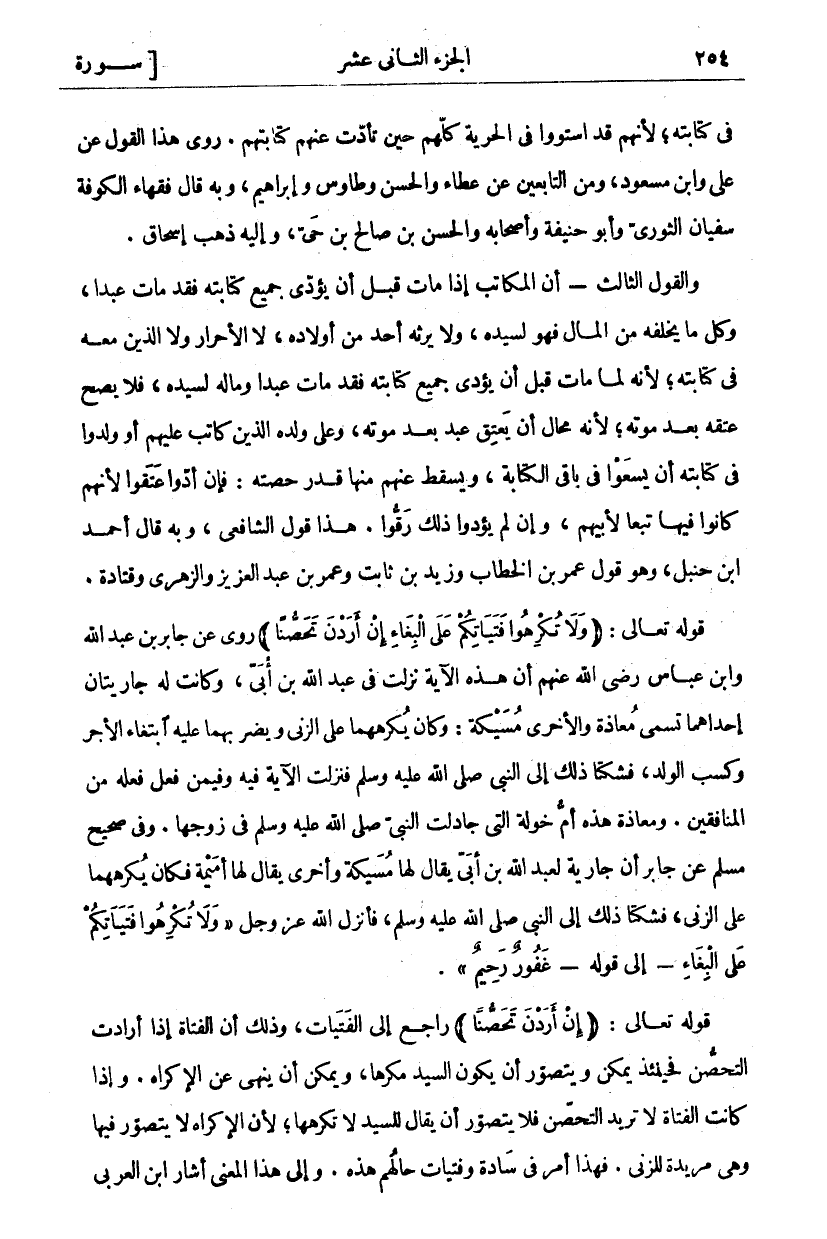 ٢٥٤ الجزء الثانى عشر [ سورة
فى كتابته؛ لأنهم قد استووا فى الحرية كلّهم حين تأدّت عنهم كتابتهم . روى هذا القول عن
على وابن مسعود، ومن التابعين عن عطاء والحسن وطاوس وإبراهيم، وبه قال فقهاء الكوفة
سفيان الثورىّ وأبو حنيفة وأصحابه والحسن بن صالح بن حَىّ، وإليه ذهب إسحاق .
والقول الثالث — أن المكاتب إذا مات قبل أن يؤدّى جميع كتابته فقد مات عبدا ،
وكل ما يخلفه من المال فهو لسيده ، ولا يرثه أحد من أولاده ، لا الأحرار ولا الذين معه
فى كتابته ؛ لأنه لما مات قبل أن يؤدى جميع كتابته فقد مات عبدا وماله لسيده ، فلا يصح
عتقه بعد موته ؛ لأنه محال أن يَعتِق عبد بعد موته ، وعلى ولده الذين كاتب عليهم أو ولدوا
فى كتابته أن يسعَوْا فى باقى الكتابة ، ويسقط عنهم منها قدر حصته : فإن أدّوا عَتَقوا لأنهم
كانوا فيها تبعا لأبيهم ، وإن لم يؤدوا ذلك رَقُّوا . هذا قول الشافعى ، وبه قال أحمد
ابن حنبل، وهو قول عمر بن الخطاب وزيد بن ثابت وعمر بن عبد العزيز والزهرى وقتادة .
قوله تعالى : ﴿ وَلَا تُكْرِهُوا فَتَيَاتِكُمْ عَلَى الْبِغَاءِ إِنْ أَرَدْنَ تَحَصُّنًا ﴾ روى عن جابر بن عبد الله
وابن عباس رضى الله عنهم أن هذه الآية نزلت فى عبد الله بن أُبَىّ ، وكانت له جاريتان
إحداهما تسمى مُعاذة والأخرى مُسَيْكة : وكان يُكرههما على الزنى ويضربهما عليه ٱبتغاء الأجر
وكسب الولد، فشكتا ذلك إلى النبي صلى الله عليه وسلم فنزلت الآية فيه وفيمن فعل فعله من
المنافقين . ومعاذة هذه أمُّ خولة التى جادلت النبىّ صلى الله عليه وسلم فى زوجها . وفى صحيح
مسلم عن جابر أن جارية لعبد الله بن أبَىّ يقال لها مُسَيكة وأخرى يقال لها أمَيْمة فكان يُكرههما
على الزنى، فشكتا ذلك إلى النبي صلى الله عليه وسلم، فأنزل الله عز وجل « وَلَا تُكْرِهُوا فَتَيَاتِكُمْ
عَلَى الْبِغَاءِ — إلى قوله — غَفُورٌ رَحِيمٌ » .
قوله تعالى : ﴿ إِنْ أَرَدْنَ تَحَصُّنًا ﴾ راجع إلى الفَتَيات ، وذلك أن الفتاة إذا أرادت
التحصُّن فحينئذ يمكن ويتصوّر أن يكون السيد مكرها، ويمكن أن ينهى عن الإكراه . وإذا
كانت الفتاة لا تريد التحصّن فلا يتصوّر أن يقال للسيد لا تكرهها؛ لأن الإكراه لا يتصوّر فيها
وهى مريدة للزنى . فهذا أمر فى سَادة وفتيات حالُهم هذه . وإلى هذا المعنى أشار ابن العربى